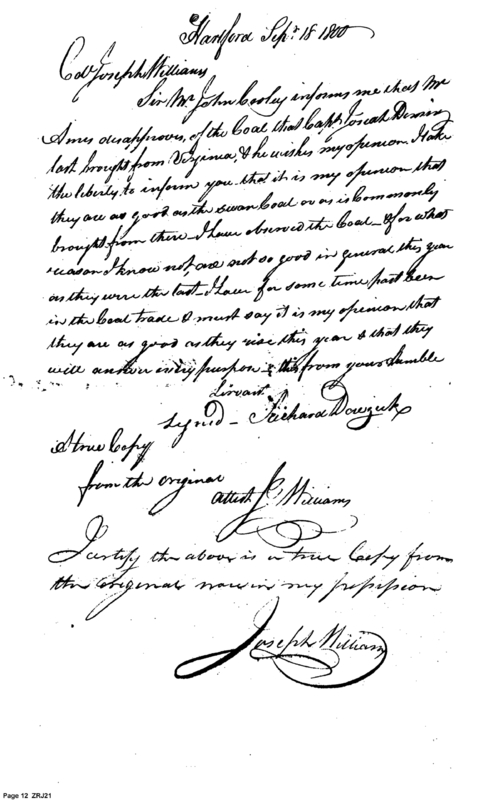 Hartford Sepr 18 1800
Col Joseph Williams
Sir Mr John Cooley informs me that Mr
Ames disapproves, of the Coal that Capt Josiah
last brought from Virginia, & he wishes my opinion I take
the liberty to inform you that it is my opinion that
they are as good as the Coal or as is Commonly
brought from there I have observed the Coal & for what
reason I know not, are not so good in general this year
as they were the last I have for some time past been
in the Coal trade & must say it is my opinion that
they are as good as they rise this year & that they
will answer every purpose this from your humble
Servant
Signd Richard
A true Copy
from the original
attest J Williams
I certify the above is a true Copy from
the original now in my possession
Joseph Williams
Page 12 ZRJ21